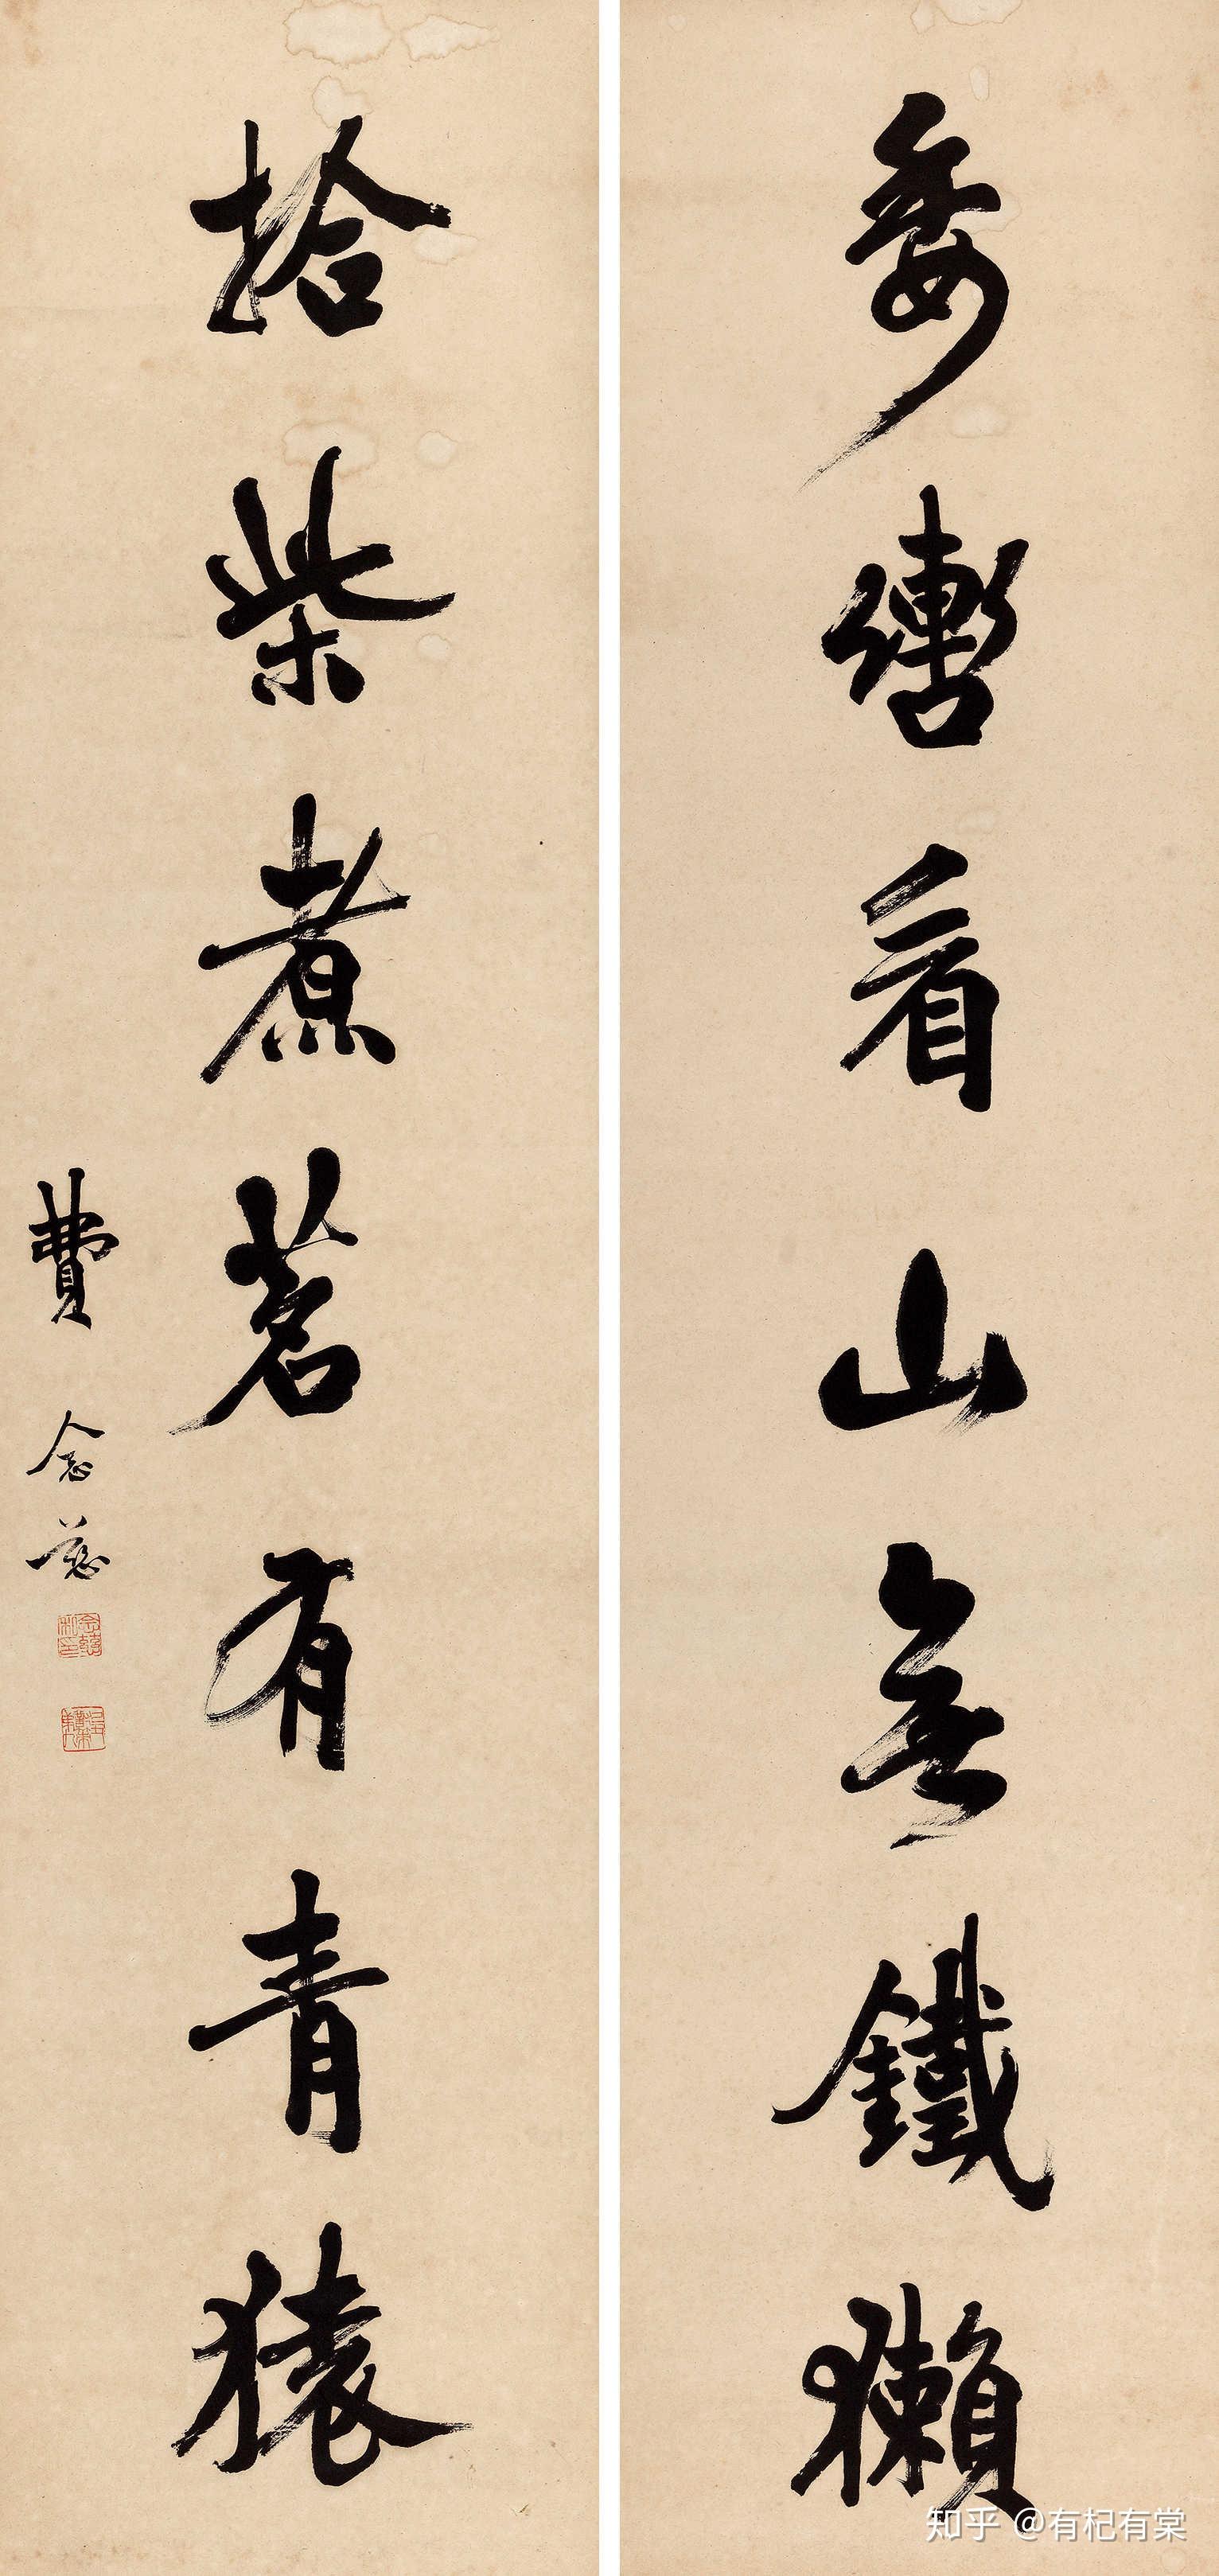 委轡看山無鐵獺
拾柴煮茗有青猿
費念慈
知乎 @有杞有棠